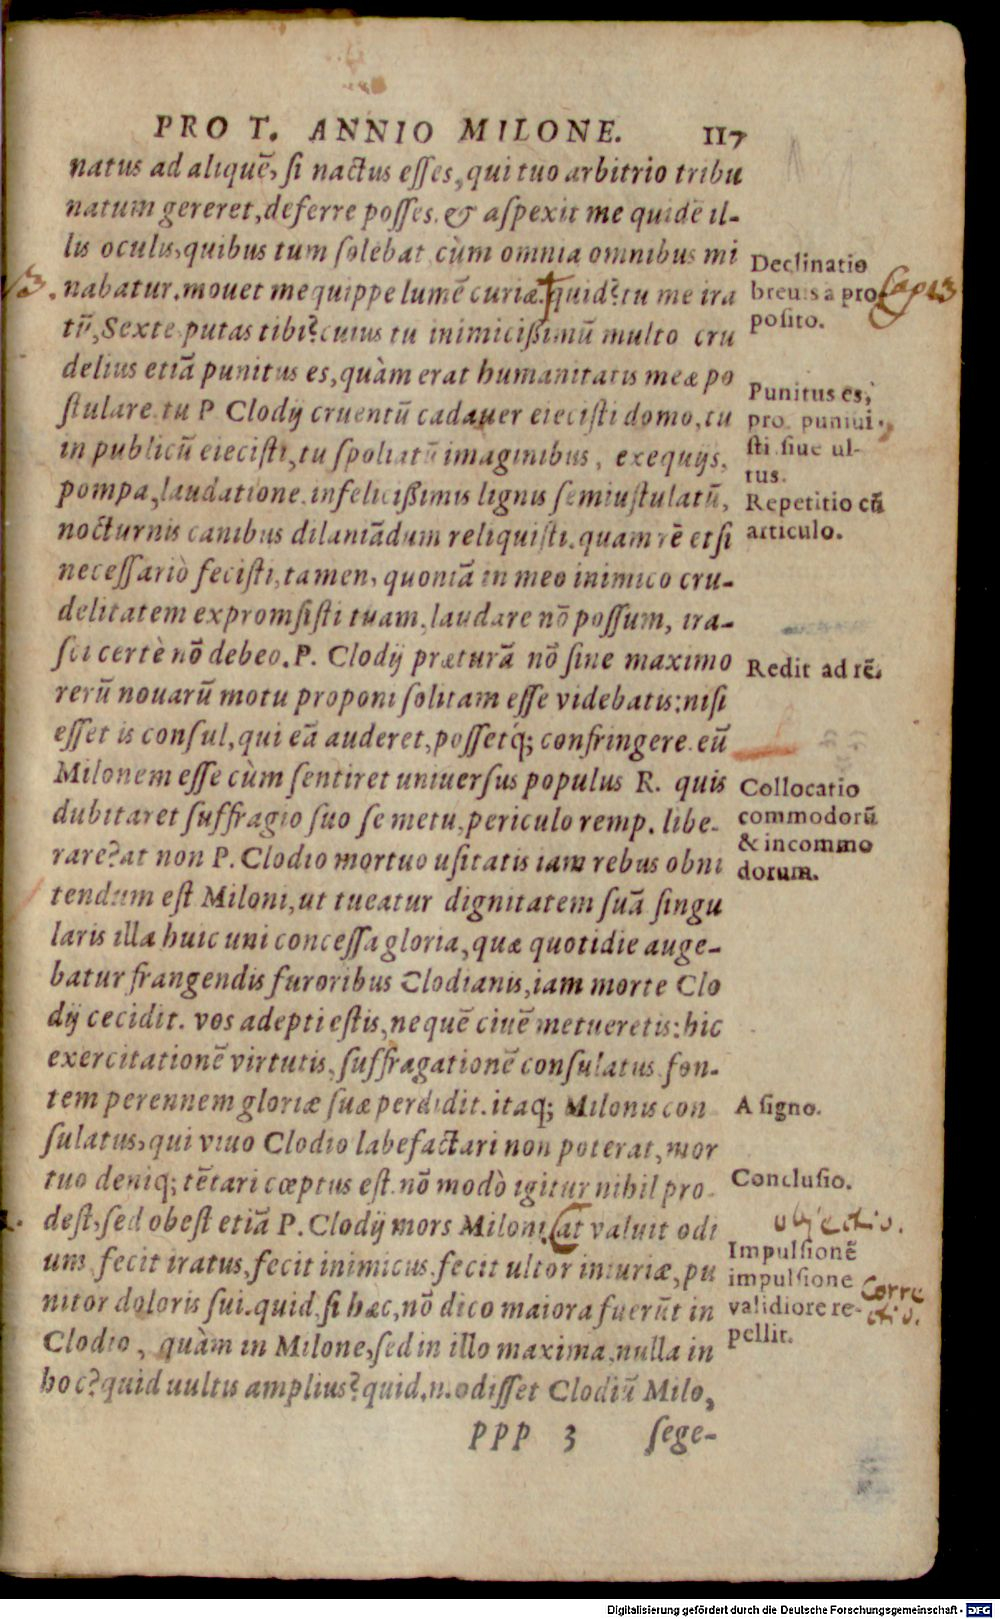 PRO T. ANNIO MILONE. 117
natus ad aliquē, si nactus esses, qui tuo arbitrio tribu
natum gereret, deferre posses. & aspexit me quidē il-
lis oculis, quibus tum solebat cùm omnia omnibus mi
nabatur. mouet me quippe lumē curiæ. quid? tu me ira
tū, Sexte putas tibi? cuius tu inimicißimū multo cru
delius etiā punitus es, quàm erat humanitatis meæ po
stulare. tu P Clodij cruentū cadauer eiecisti domo, tu
in publicū eiecisti, tu spoliatū imaginibus, exequijs,
pompa, laudatione. infelicißimis lignis semiustulatū,
nocturnis canibus dilaniādum reliquisti. quam rē etsi
necessariò fecisti, tamen, quoniā in meo inimico cru-
delitatem expromsisti tuam, laudare nō possum, ira-
sci certè nō debeo. P. Clodij præturā nō sine maximo
rerū nouarū motu proponi solitam esse videbatis: nisi
esset is consul, qui eā auderet, possetq́; confringere. eū
Milonem esse cùm sentiret uniuersus populus R. quis
dubitaret suffragio suo se metu, periculo remp. libe-
rare? at non P. Clodio mortuo usitatis iam rebus obni
tendum est Miloni, ut tueatur dignitatem suā singu
laris illa huic uni concessa gloria, quæ quotidie auge-
batur frangendis furoribus Clodianis, iam morte Clo
dij cecidit. vos adepti estis, ne quē ciuē metueretis: hic
exercitationē virtutis, suffragationē consulatus. fon-
tem perennem gloriæ suæ perdidit. itaq; Milonis con
sulatus, qui viuo Clodio labefactari non poterat, mor
tuo deniq; tētari cœptus est. nō modò igitur nihil pro-
dest, sed obest etiā P. Clodij mors Miloni. at valuit odi
um. fecit iratus, fecit inimicus. fecit ultor iniuriæ, pu
nitor doloris sui. quid, si hæc, nō dico maiora fuerūt in
Clodio, quàm in Milone, sed in illo maxima, nulla in
hoc? quid uultis amplius? quid. n. odisset Clodiū Milo,
PPP 3 sege-
3.
Declinatio
breuis a pro
posito.
Cap 13
Punitus es,
pro puniui-
sti siue ul-
tus.
Repetitio cū
articulo.
Redit ad rē.
Collocatio
commodorū
& incommo
dorum.
A signo.
Conclusio.
objectio.
Impulsionē
impulsione
validiore re-
pellit.
Corre
ctio.
Digitalisierung gefördert durch die Deutsche Forschungsgemeinschaft - DFG